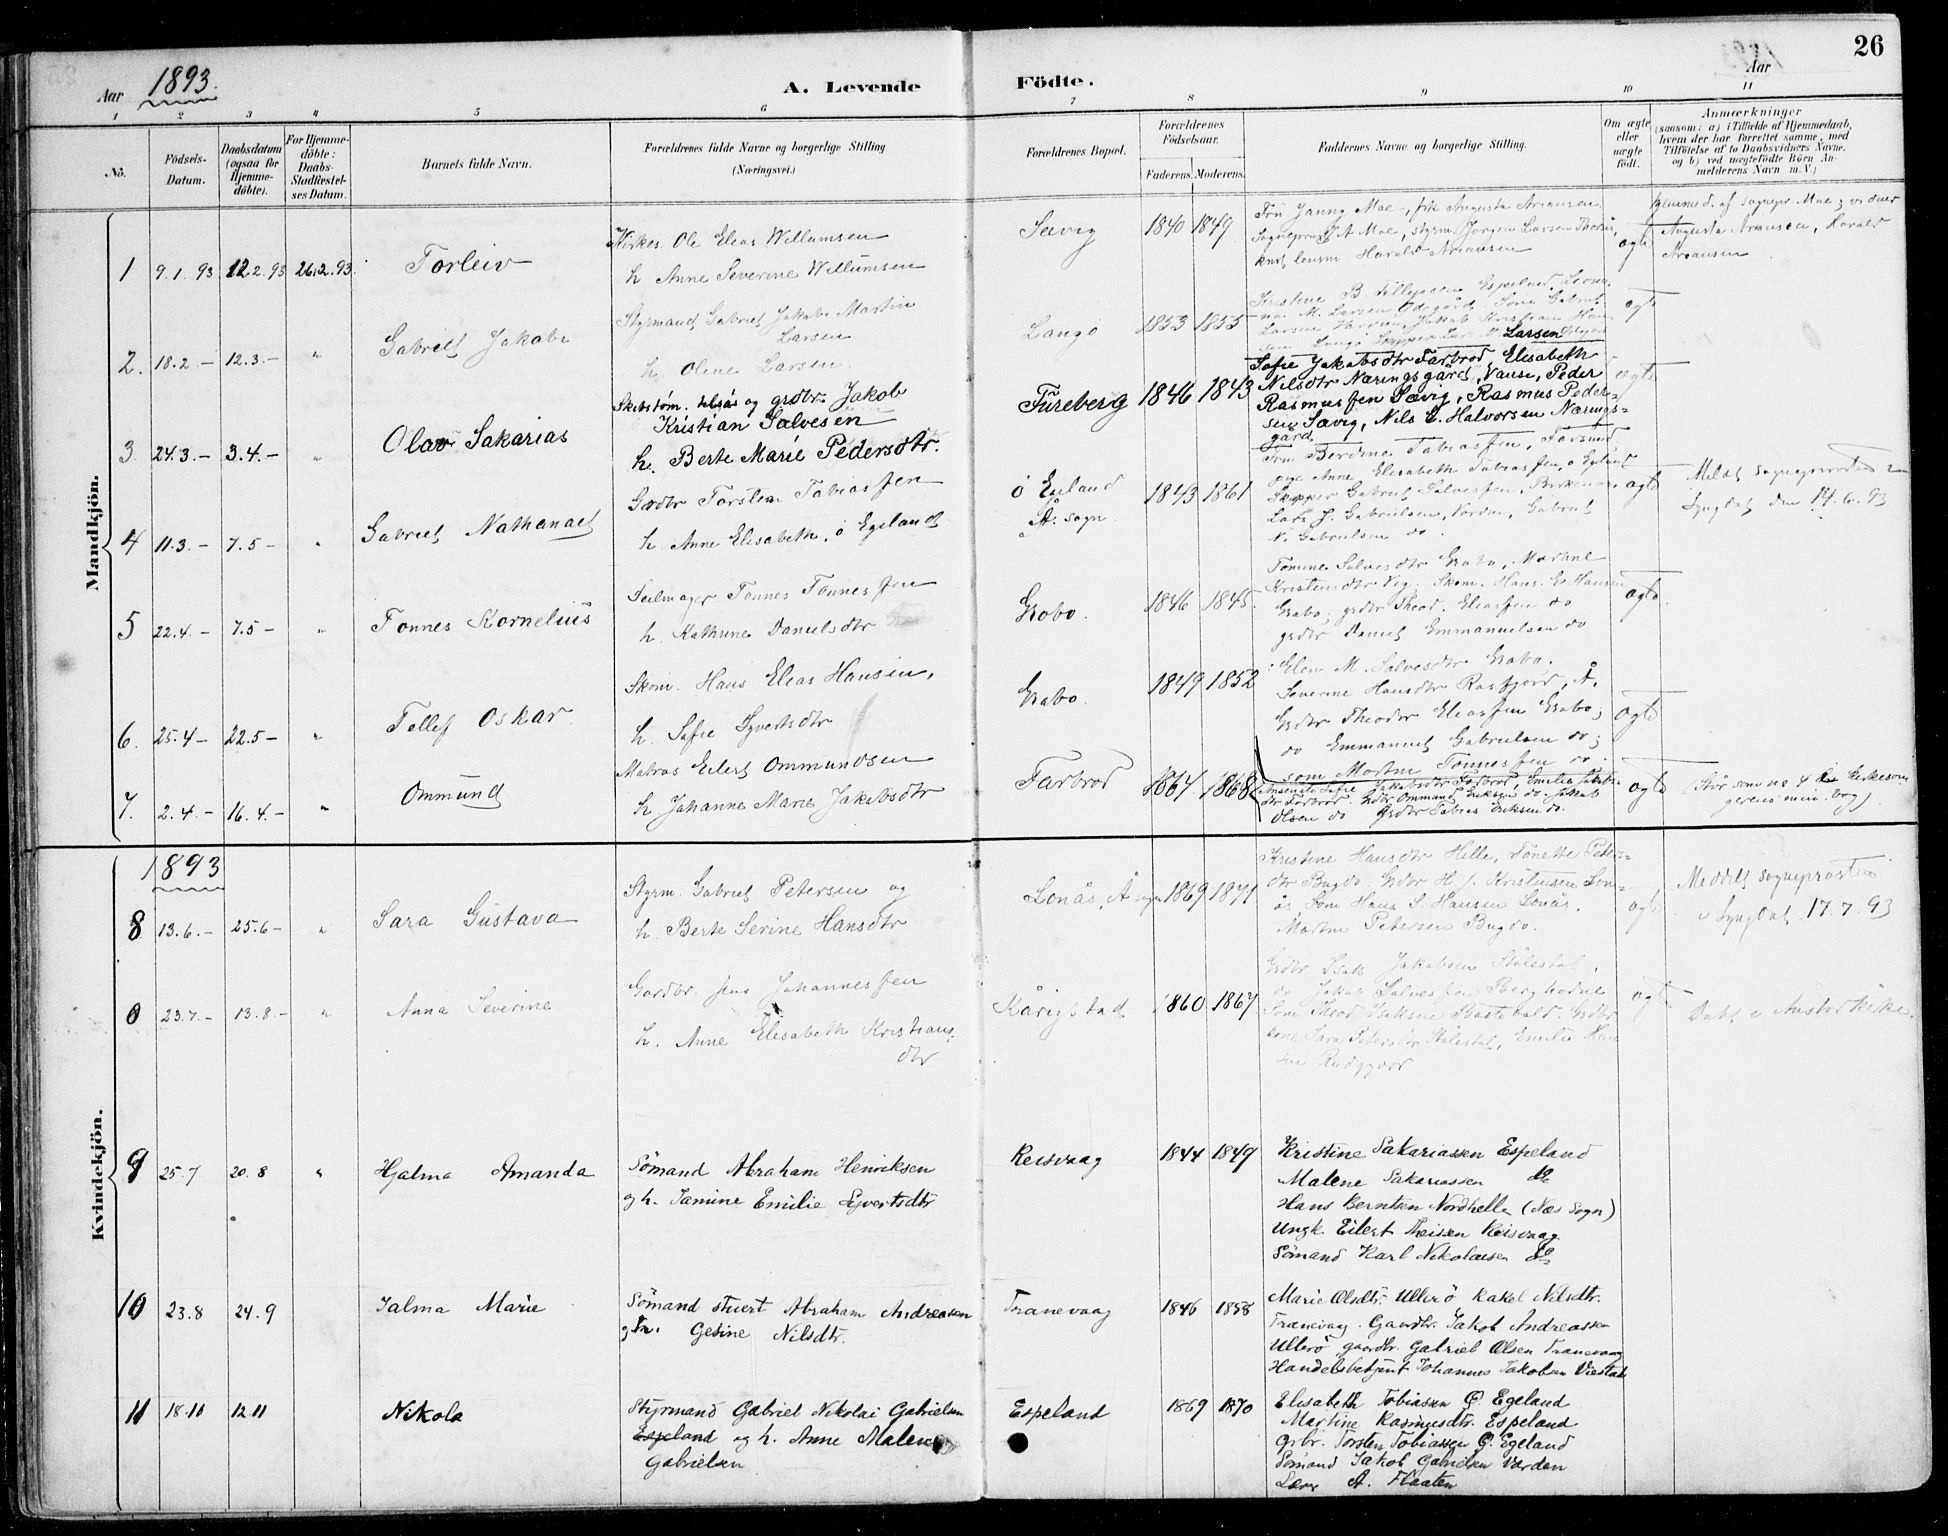 Aar 1893.
A. Levende Födte.
Aar
26
1 2 3 4 5 6 7 8 9 10 11
No.
Födsels-Datum.
Daabsdatum (ogsaa for Hjemme-döbte).
For Hjemme-döbte: Daabs-Stadfæstel-ses Datum.
Barnets fulde Navn.
Forældrenes fulde Navne og borgerlige Stilling. (Næringsvei.)
Forældrenes Bopæl.
Forældrenes Födselsaar.
Faderens. Moderens.
Faddernes Navne og borgerlige Stilling.
Om ægte eller uægte födt.
Anmærkninger
(saasom: a) i Tilfælde af Hjemmedaab, hvem der har forrettet samme, med Tilföielse af to Daabsvidners Navne, og b) ved uægtefödte Börn An-melderens Navn m. V.)
Mandkjön.
1 9.1.93 12.2.93 26.2.93. Torleiv
Kirkes. Ole Elias Willumsen
h. Anne Severine Willumsen
Sævig 1840 1849
Fru Janna Moe, frk Augusta Arcausen
Sogneprest J A Moe, styrm. Jørgen Larsen
lensm. Harald
ægte
Hjemmed. af Sognepr. Moe;
Augusta Harald
2. 18.2.– 12.3.– " Gabriel Jakobi
Styrmand Gabriel Jakobi Martin
Larsen
h. Oline Larsen.
Langø 1853 1855
ægte
3. 24.3.– 3.4.– " Olav Sakarias
Skibstøm. og grdbr. Jakob
Kristian Salvesen
h. Berte Marie Pedersdtr.
Fureberg 1846 1843
Sofie Jakobsdtr Farbrod, Elisabeth
Nilsdtr Næringsgård, Vanse, Peder
Rasmussen Sævig, Rasmus Peder-
sen Sævig, Nils E. Halvorsen Nærings-
gård
ægte
4 11.3.– 7.5– " Gabriel Nathanael
Grdbr Torsten Tobiassen
h. Anne Elisabeth, ö Egeland
ö Egeland
Å. sogn.
1843 1861
Fru Berdine Tobiassen, Farsund
pige Anne Elisabeth Tobiassen, ö Egeland
Skipper Gabriel Salvesen,
Lars J. Gabrielsen, Vorden, Gabriel
N. Gabrielsen do.
ægte
Meldt Sognepresten i
Lyngdal den 14.6.93
5 22.4.– 7.5– " Tønnes Kornelius
Seilmager Tønnes Tønnessen
h. Kathrine Danielsdtr
Grabo. 1846 1845.
Tomine Salvesdtr Grabo,
Kristensdtr Skom. Hans E Hansen
Grabo, grdbr Theod. Eliassen do
grdbr Daniel Emmanuelsen do
ægte.
6. 25.4– 22.5– " Tellef Oskar
Skom. Hans Elias Hansen,
h. Sofie Syvertsdtr
Grabo. 1849 1852
Elen M. Salvesdtr Grabo.
Severine Hansdtr Rosfjord, Å.
Grdbr Theodor Eliassen Grabo;
do Emmanuel Gabrielsen do;
som Morten Tønnessen do.
ægte
7. 2.4.– 16.4.– " Ommund
Matros Eilert Ommundsen
h. Johanne Marie Jakobsdtr
Farbrod 1864 1868
Sofie Jakobsdtr Farbrod, Emilie
Farbrod. Grdbr Ommund Eriksen do. Jakob
Olsen do Grdbr Tobias Eriksen do.
ægte
(Står som no 4
bog)
Kvindekjön.
1893
8 13.6.– 25.6– " Sara Gustava
Styrm. Gabriel Petersen og
h. Berte Serine Hansdtr
Lonås, Å sogn 1869 1871
Kristine Hansdtr Helle, Tonette Peters-
dtr Bugdø. Grdbr H J. Kristensen Lon-
ås Søm Hans S. Hansen Lonås.
Morten Petersen Bugdø.
ægte
Meddelt Sogneprosten
i Lyngdal 17.7.93
8 23.7.– 13.8.– " Anna Severine
Gardbr. Jens Johannessen
h. Anne Elisabeth Kristians-
dtr
Kårigstad 1860 1867
Grdbr Isak Jakobsen Stålestøl,
do Jakob Salvessen
Søm Theod. Isaksen Grdbr
kone Sara Petersdtr Stålestøl, Emilie Han
sen
ægte
Døbt i Austad kirke.
9 25.7 20.8 " Hjalma Amanda
Sömand Abraham Henriksen
og h. Tamine Emilie Syvertsdtr
Reisvaag 1844 1849
Kristine Sakariassen Espeland
Malene Sakariassen do
Hans Berntsen Nordhelle (Næs Sogn)
Ungk. Eilert Theisen Reisvaag
Sömand Karl Nikolaisen do
10 23.8 24.9 Jalma Marie
Sömand stuert Abraham Andreassen
og h. Gesine Nilsdtr.
Tranevaag 1846 1858
Marie Olsdtr. Ullerö Rakel Nilsdtr.
Tranevaag. Gaardbr. Jakob Andreassen
Ullerö gaardbr. Gabriel Olsen Tranevaag
Handelsbetjent Johannes Jakobsen
11 18.10 12.11 Nikola
Styrmand Gabriel Nikolai Gabrielsen
Espeland og h. Anne Malene
Gabrielsen
Espeland 1869 1870
Elisabeth Tobiassen Ö. Egeland
Martine Rasmusdtr. Espeland
Grbr. Torsten Tobiassen Ö. Egeland
Sömand Jakob Gabrielsen Varden
Lærer A. Flaaten